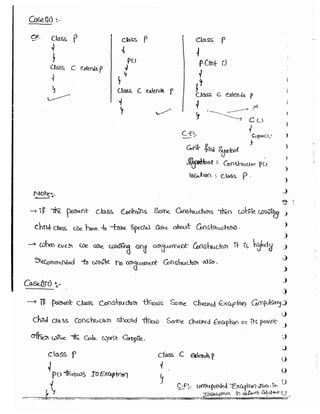 Case(ii) :-
Eg. class P class P class P
{ { {
} P() P(int i)
class C extends P { {
{ } }
} } }
class C extends P class C extends P
{ {
} }
C()
{
super();
}
C.E:-
Can't find Symbol
Symbol : Constructor P()
location : class P.
Note:-
→ if the parent class contains some constructors then while writing
child class we have to take special care about constructors.
→ when ever we are writing any argument constructor it is highly
recommended to write no argument constructor also.
Case(iii) :-
→ If parent class constructor throws some checked exception compulsory
child class constructor should throw same checked exception or its parent
other wise the code won't compile.
class P class C extends P
{ {
P() throws IOException }
{
} }
C.E:- unreported Exception java.io.
IOException in default constructor